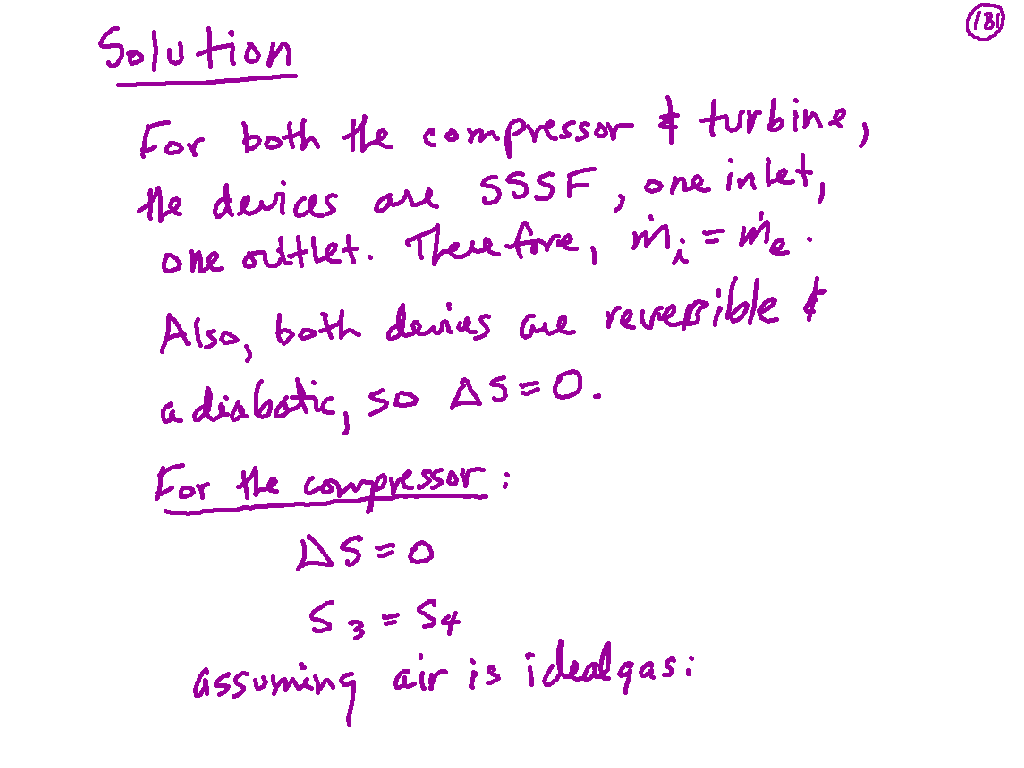 181
Solution
For both the compressor & turbine,
the devices are SSSF, one inlet,
one outlet. Therefore, ṁi = ṁe.
Also, both devices are reversible &
adiabatic, so ΔS = 0.
For the compressor:
ΔS = 0
S3 = S4
assuming air is ideal gas: